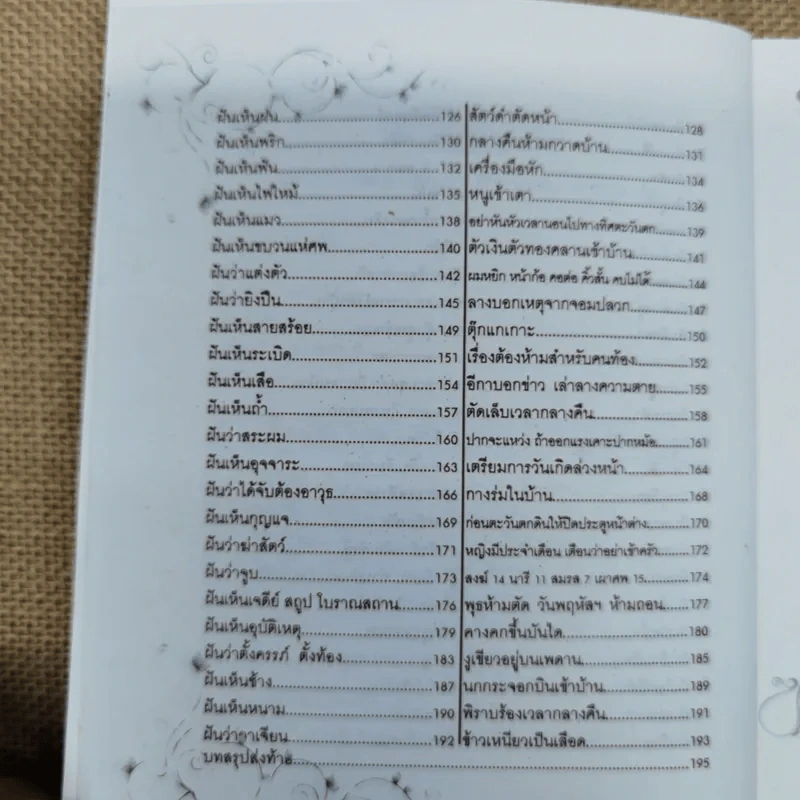 ฝันเห็นฝน 126
ฝันเห็นพริก 130
ฝันเห็นฟัน 132
ฝันเห็นไฟไหม้ 135
ฝันเห็นแมว 138
ฝันเห็นขบวนแห่ศพ 140
ฝันว่าแต่งตัว 142
ฝันว่ายิงปืน 145
ฝันเห็นสายสร้อย 149
ฝันเห็นระเบิด 151
ฝันเห็นเสือ 154
ฝันเห็นถ้ำ 157
ฝันว่าสระผม 160
ฝันเห็นอุจจาระ 163
ฝันว่าได้จับต้องอาวุธ 166
ฝันเห็นกุญแจ 169
ฝันว่าฆ่าสัตว์ 171
ฝันว่าจูบ 173
ฝันเห็นเจดีย์ สถูป โบราณสถาน 176
ฝันเห็นอุบัติเหตุ 179
ฝันว่าตั้งครรภ์ ตั้งท้อง 183
ฝันเห็นช้าง 187
ฝันเห็นหนาม 190
ฝันว่าอาเจียน 192
สัตว์ดำตัดหน้า 128
กลางคืนห้ามกวาดบ้าน 131
เครื่องมือหัก 134
หนูเข้าเตา 136
อย่าหันหัวเวลานอนไปทางทิศตะวันตก 139
ตัวเงินตัวทองคลานเข้าบ้าน 141
ผมหยิก หน้าก้อ คอต่อ คิ้วสั้น คบไม่ได้ 144
ลางบอกเหตุจากจอมปลวก 147
ตุ๊กแกเกาะ 150
เรื่องต้องห้ามสำหรับคนท้อง 152
อีกาบอกข่าว เล่าลางความตาย 155
ตัดเล็บเวลากลางคืน 158
ปากจะแหว่ง ถ้าออกแรงเคาะปากหม้อ 161
เตรียมการวันเกิดล่วงหน้า 164
กางร่มในบ้าน 168
ก่อนตะวันตกดินให้ปิดประตูหน้าต่าง 170
หญิงมีประจำเดือน เตือนว่าอย่าเข้าครัว 172
สงฆ์ 14 นารี 11 สมรส 7 เผาศพ 15 174
พุธห้ามตัด วันพฤหัสฯ ห้ามถอน 177
คางคกขึ้นบันได 180
งูเขียวอยู่บนเพดาน 185
นกกระจอกบินเข้าบ้าน 189
พิราบร้องเวลากลางคืน 191
ข้าวเหนียวเป็นเลือด 193
บทสรุปส่งท้าย 195